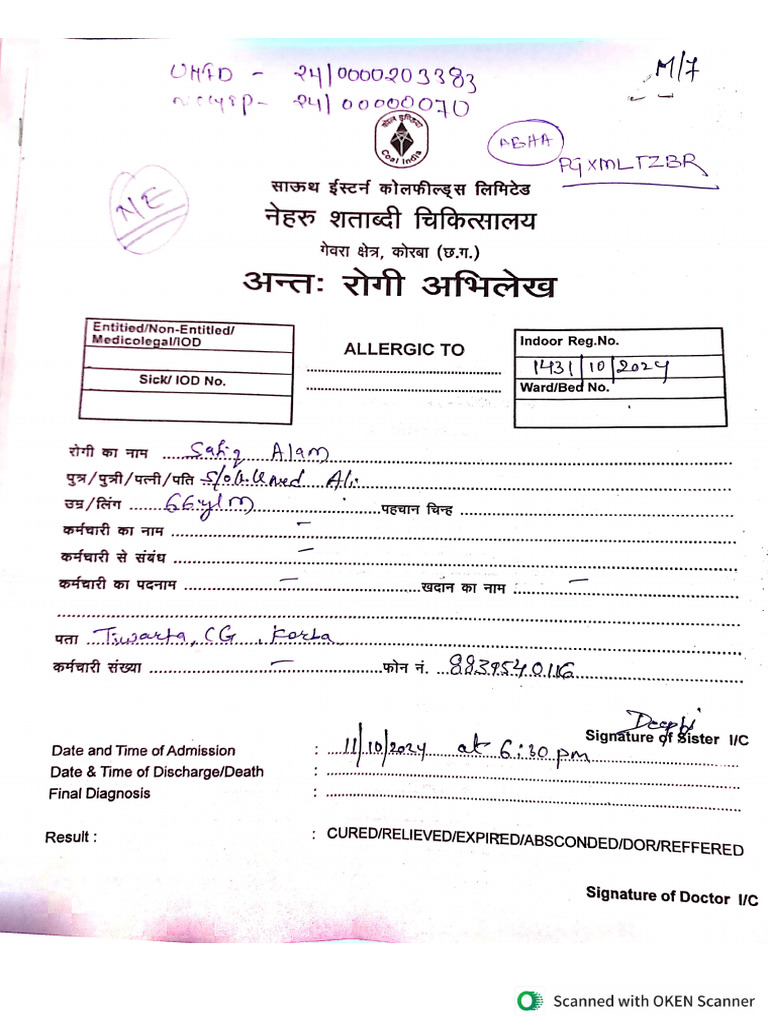 UHID - 24/0000203383
24/00000070
M/7
कोल इण्डिया
Coal India
ABHA
PGXMLTZBR
NE
साऊथ ईस्टर्न कोलफील्ड्स लिमिटेड
नेहरु शताब्दी चिकित्सालय
गेवरा क्षेत्र, कोरबा (छ.ग.)
अन्तः रोगी अभिलेख
Entitied/Non-Entitled/
Medicolegal/IOD
Sick/ IOD No.
ALLERGIC TO
Indoor Reg.No.
1431/10/2024
Ward/Bed No.
रोगी का नाम Alam
पुत्र/पुत्री/पत्नी/पति S/o Ali
उम्र/लिंग 66y/M पहचान चिन्ह
कर्मचारी का नाम -
कर्मचारी से संबंध -
कर्मचारी का पदनाम - खदान का नाम : -
पता Tiwarta, CG, Korba
कर्मचारी संख्या - फोन नं. 8839540116
Deepti
Signature of Sister I/C
Date and Time of Admission : 11/10/2024 at 6:30 pm
Date & Time of Discharge/Death :
Final Diagnosis :
Result : : CURED/RELIEVED/EXPIRED/ABSCONDED/DOR/REFFERED
Signature of Doctor I/C
Scanned with OKEN Scanner